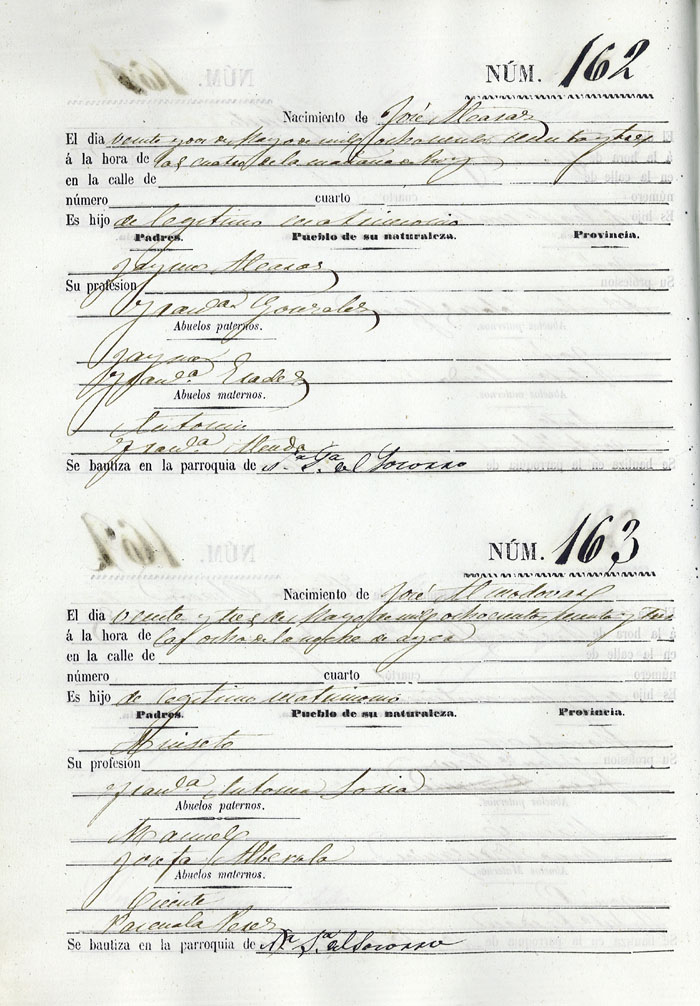 NÚM. 162
Nacimiento de José Alcaras
El dia veinte y tres de Mayo de mil ochocientos sesenta y tres
á la hora de las cuatro de la mañana de hoy
en la calle de
número cuarto
Es hijo de legitimo matrimonio
Padres. Pueblo de su naturaleza. Provincia.
Jayme Alcaras
Su profesion
Fran.ca Gonzales
Abuelos paternos.
Jayme
Fran.ca
Abuelos maternos.
Antonio
Fran.ca
Se bautiza en la parroquia de N.a S.a del Socorro
NÚM. 163
Nacimiento de José Almodovar
El dia veinte y tres de Mayo de mil ochocientos sesenta y tres
á la hora de las ocho de la noche de ayer
en la calle de
número cuarto
Es hijo de legitimo matrimonio
Padres. Pueblo de su naturaleza. Provincia.
Aniseto
Su profesion
Fran.ca Antonia Soria
Abuelos paternos.
Manuel
Josefa Alberola
Abuelos maternos.
Vicente
Pascuala Peres
Se bautiza en la parroquia de N.a S.a del Socorro